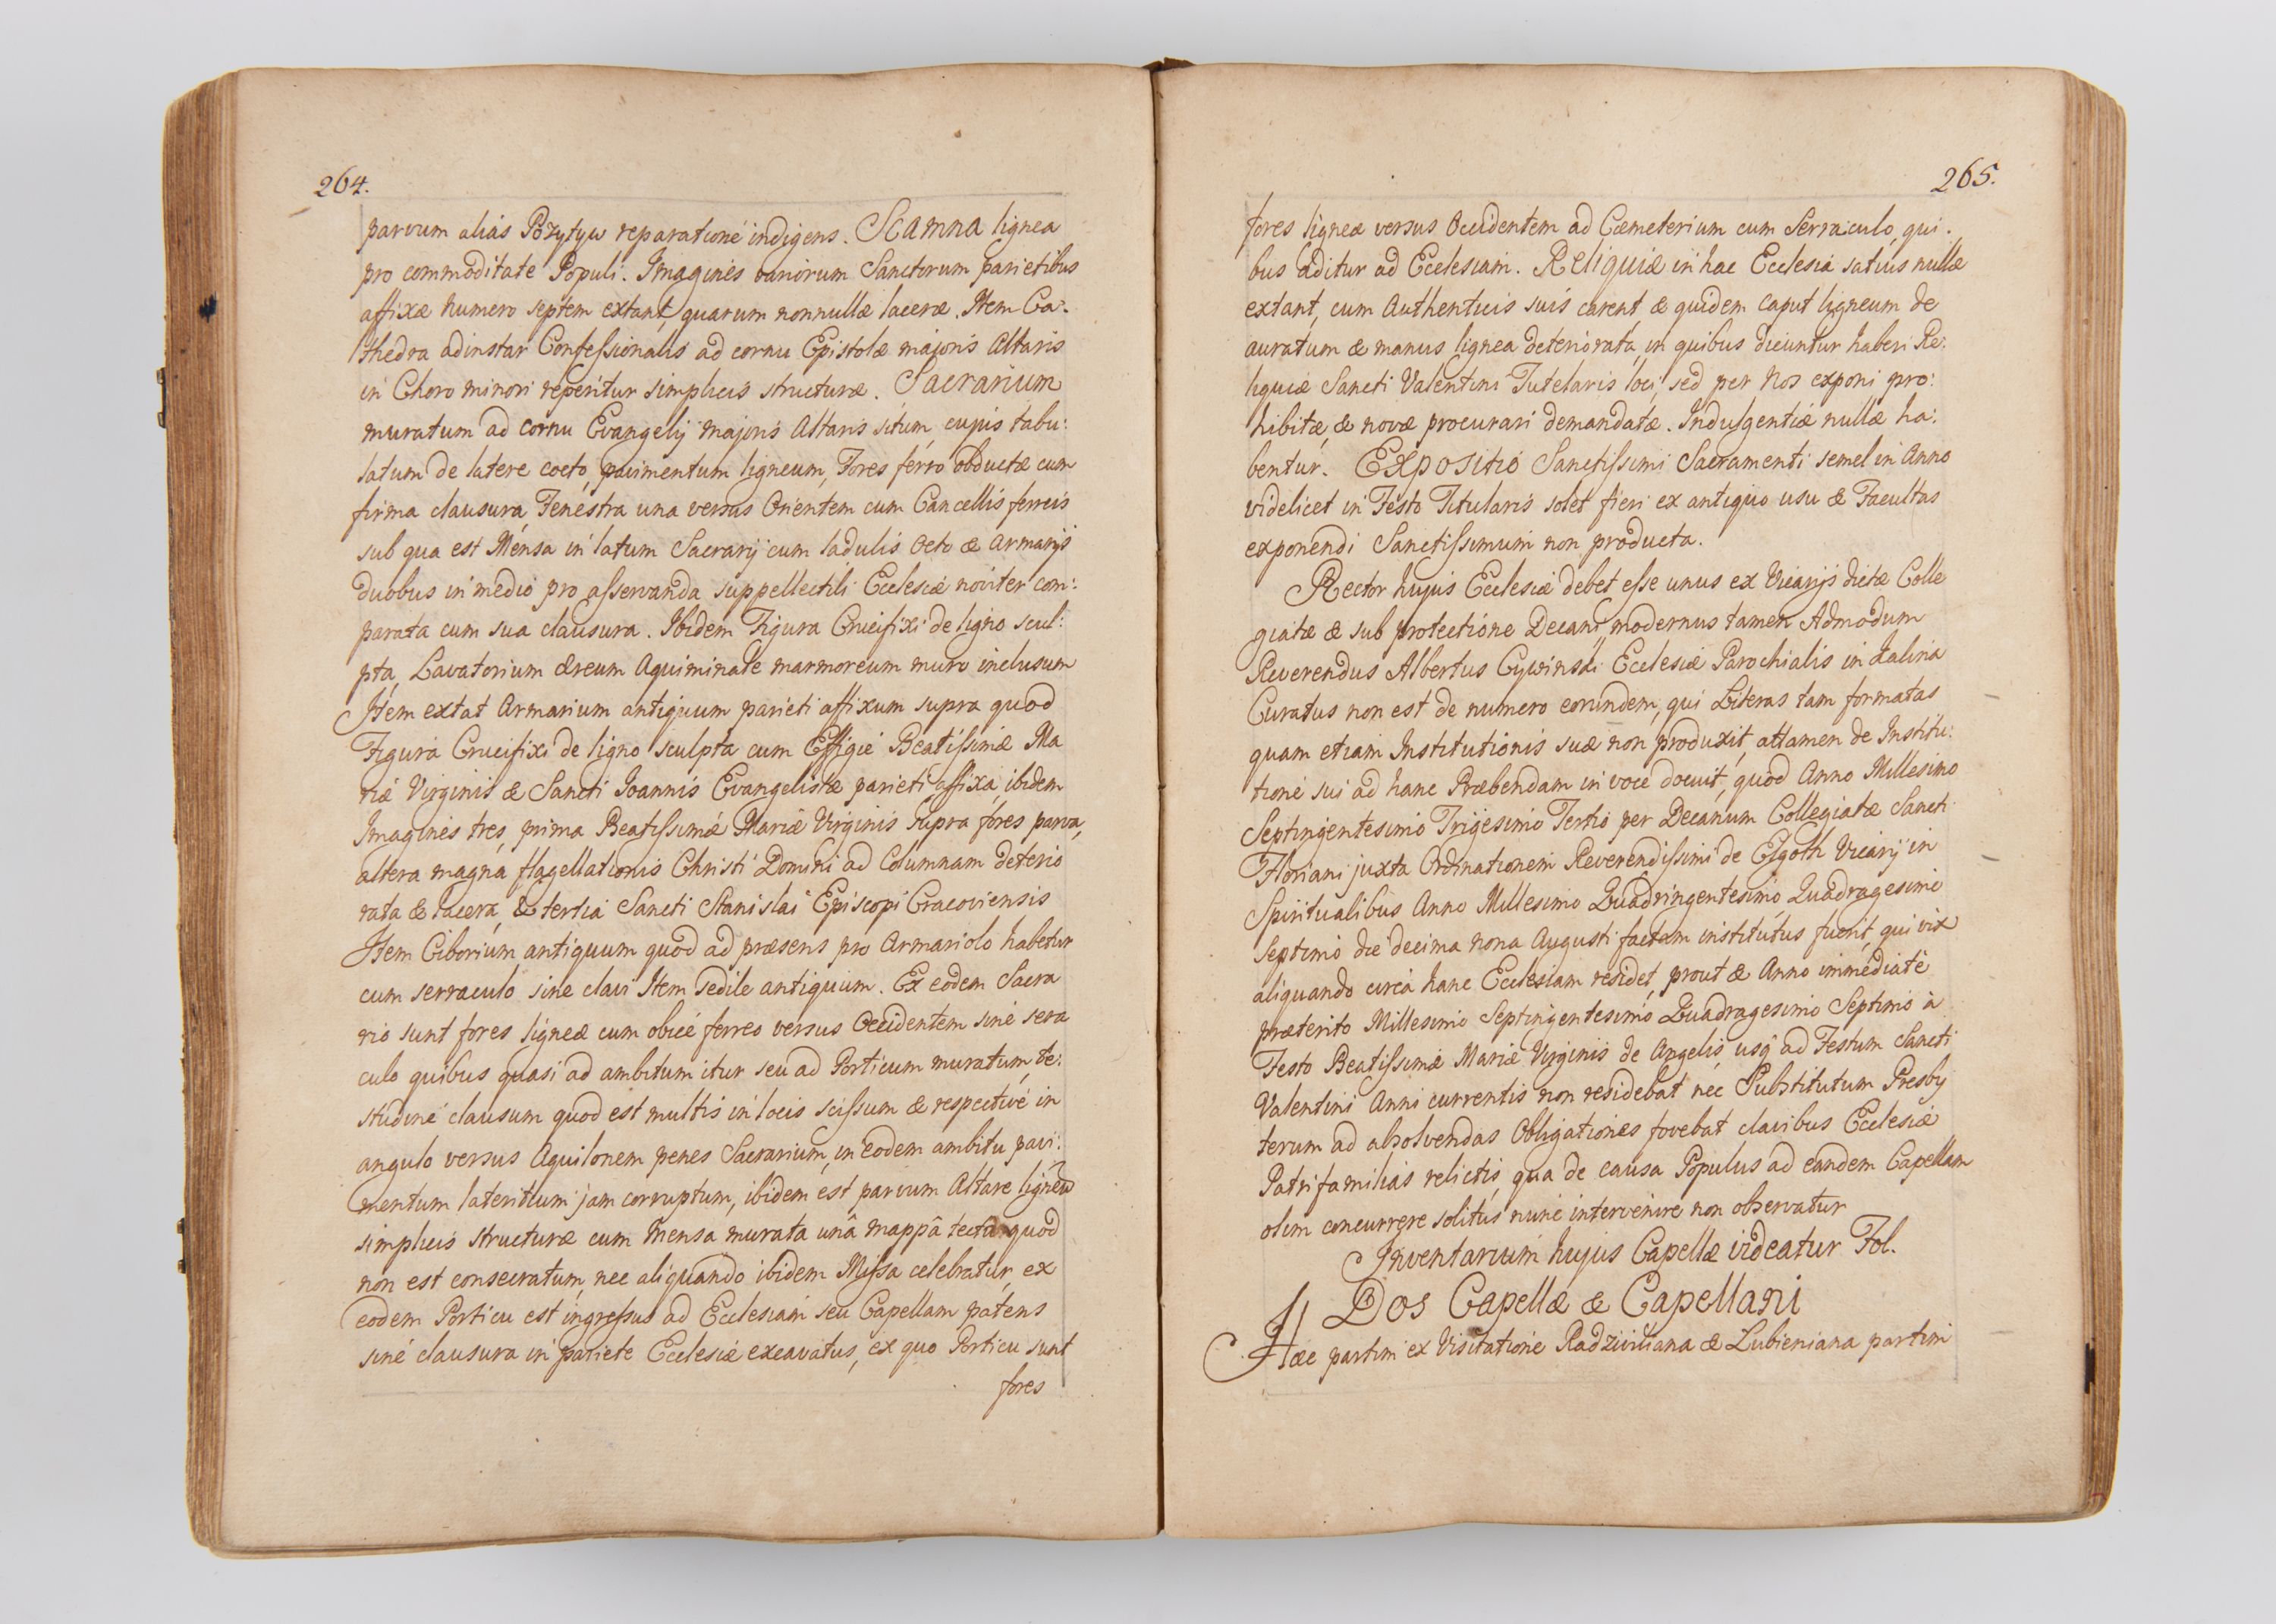 264.
parvum aliàs Pozytyw reparatione indigens. Scamna lignea
pro commoditate Populi. Imagines variorum Sanctorum parietibus
affixæ numero septem extant, quarum nonnullæ laceræ. Item Ca:
thedra adinstar Confessionalis ad cornu Epistolæ majoris Altaris
in Choro minori reperitur simplicis structuræ. Sacrarium
muratum ad cornu Evangelij majoris Altaris situm, cujus tabu:
latum de latere cocto, pavimentum ligneum, Fores ferro obductæ cum
firma clausura, Fenestra una versus Orientem cum Cancellis ferreis
sub qua est Mensa in latum Sacrarij cum ladulis octo & Armarijs
duobus in medio pro asservanda suppellectili Ecclesiæ noviter com:
parata cum sua clausura. Ibidem Figura Crucifixi de ligno scul:
pta, Lavatorium æreum Aquiminale marmoreum muro inclusum
Item extat Armarium antiquum parieti affixum supra quod
Figura Crucifixi de ligno sculpta cum Effigie Beatissimæ Ma
riæ Virginis & Sancti Joannis Evangelistæ parieti affixa, ibidem
Imagines tres, prima Beatissimæ Mariæ Virginis supra fores parva,
altera magna flagellationis Christi Domini ad Columnam deterio
rata & lacera, & tertia Sancti Stanislai Episcopi Cracoviensis
Item Ciborium antiquum quod ad præsens pro Armariolo habetur
cum serraculo sine clavi Item Sedile antiquum. Ex eodem Sacra
rio sunt fores ligneæ cum obice ferreo versus Occidentem sine sera
culo quibus quasi ad ambitum itur seu ad Porticum muratum, te:
studine clausum quod est multis in locis scissum & respective in
angulo versus Aquilonem penes Sacrarium, in eodem ambitu pavi:
mentum lateritium jam corruptum, ibidem est parvum Altare ligneũ
simplicis structuræ cum Mensa murata unâ mappâ tecta quod
non est consecratum, nec aliquando ibidem Missa celebratur, ex
eodem Porticu est ingressus ad Ecclesiam seu Capellam patens
sine clausura in pariete Ecclesiæ excavatus, ex quo Porticu sunt
fores
265.
fores ligneæ versus Occidentem ad Cæmeterium cum Serraculo, qui.
bus aditur ad Ecclesiam. Reliquiæ in hac Ecclesia satius nullæ
extant, cum Authenticis suis carent, & quidem caput ligneum de
auratum & manus lignea deteriorata, in quibus dicuntur haberi Re:
liquiæ Sancti Valentini Tutelaris loci, sed per Nos exponi pro:
hibitæ, & novæ procurari demandatæ. Indulgentiæ nullæ ha:
bentur. Expositio Sanctissimi Sacramenti semel in Anno
videlicet in Festo Titularis solet fieri ex antiquo usu & Facultas
exponendi Sanctissimum non producta.
Rector hujus Ecclesiæ debet esse unus ex Vicarijs dictæ Colle
giatæ & sub protectione Decani, modernus tamen Admodum
Reverendus Albertus Cywinski Ecclesiæ Parochialis in
Curatus non est de numero eorundem, qui Literas tam formatas
quam etiam Institutionis suæ non produxit, attamen de Institu:
tione sui ad hanc Præbendam in voce docuit, quod Anno Millesimo
Septingentesimo Trigesimo Tertio per Decanum Collegiatæ Sancti
Floriani juxta Ordinationem Reverendissimi de Elgoth Vicarij in
Spiritualibus Anno Millesimo Quadringentesimo Quadragesimo
Septimo die decima nona Augusti factam institutus fuerit, qui vix
aliquando circa hanc Ecclesiam residet, prout & Anno immediate
præterito Millesimo Septingentesimo Quadragesimo Septimo à
Festo Beatissimæ Mariæ Virginis de Angelis usq ad Festum Sancti
Valentini Anni currentis non residebat nec Substitutum Presby
terum ad absolvendas Obligationes fovebat clavibus Ecclesiæ
Patrifamilias relictis, qua de causa Populus ad eandem Capellam
olim concurrere solitus nunc intervenire non observatur
Inventarium hujus Capellæ videatur Fol.
Dos Capellæ & Capellani
Hæc partim ex Visitatione Radziviliana & Lubieniana partim